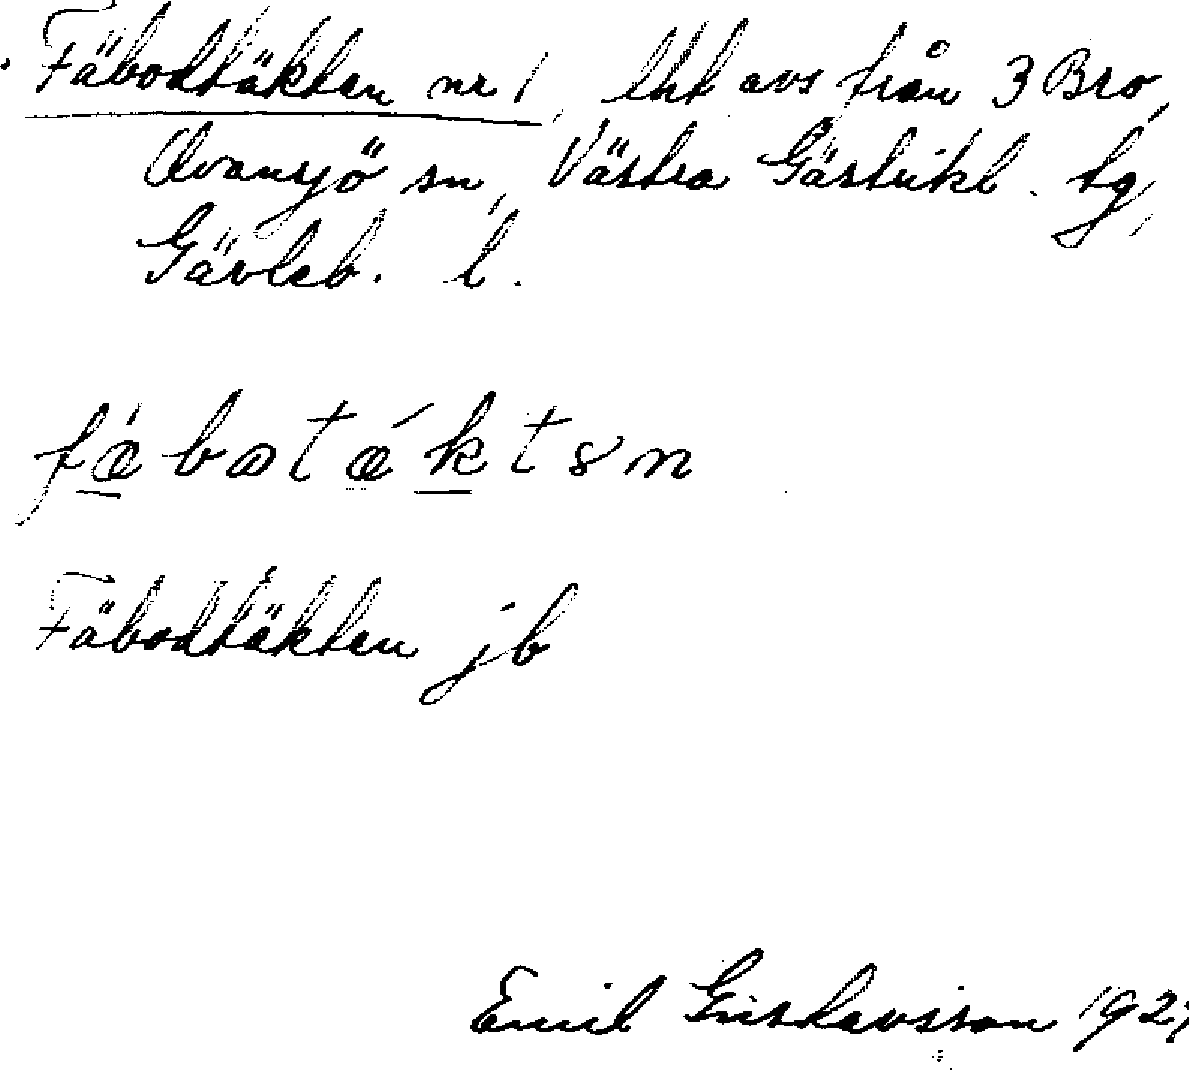 Fäbodtäkten nr 1, lht avs från 3 Bro,
Ovansjö sn, Västra Gästrikl. tg,
Gävleb. l.
fæ̀bɷtǽktən
Fäbodtäkten jb
Emil Gustavsson